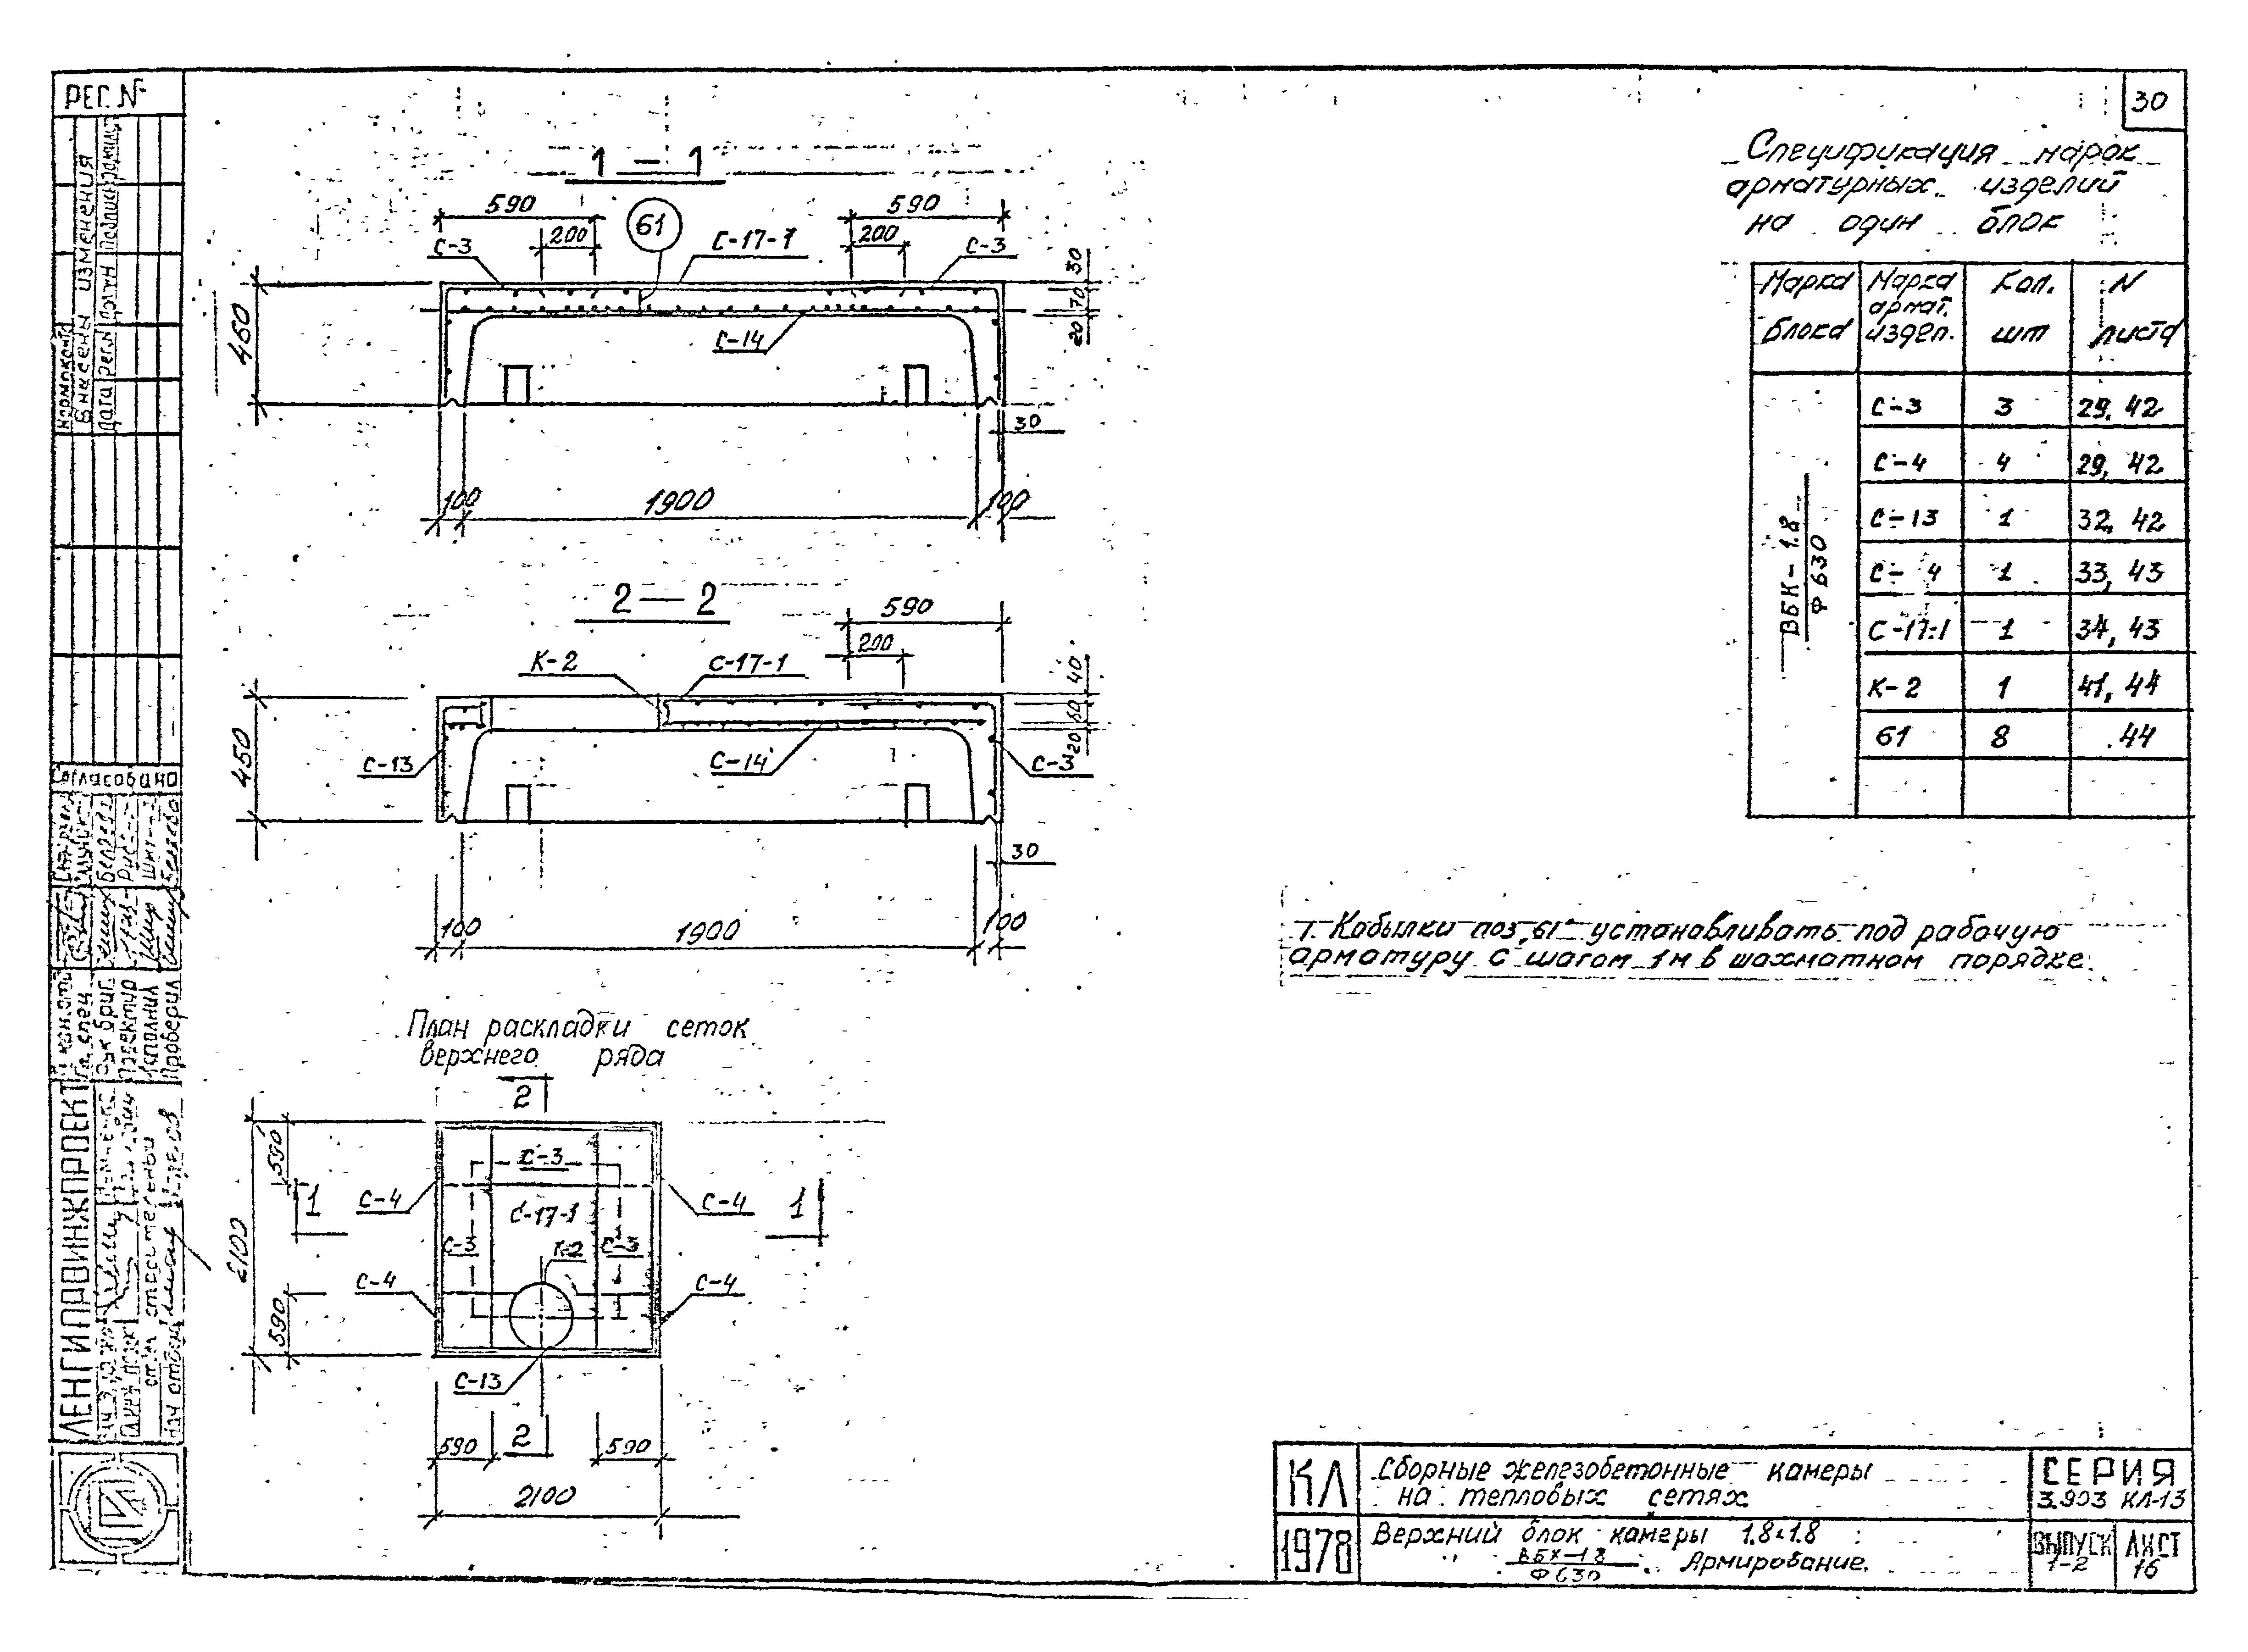 РЕГ. №
30
Спецификация марок
арматурных изделий
на один блок
1 — 1
590
590
200
61
200
С-3
С-17-1
С-3
30
70
20
460
С-14
30
100
1900
100
Марка Блока
Марка армат. издел.
Кол. шт
N листа
ВБК-1.8
Ф 630
С-3 3 29, 42
С-4 4 29, 42
С-13 1 32, 42
С- 4 1 33, 43
С-17-1 1 34, 43
К-2 1 41, 44
61 8 44
2 — 2
590
200
К-2
С-17-1
40
60
20
450
С-13
С-14
С-3
30
100
1900
100
1. Кобылки поз. 61 устанавливать под рабочую
арматуру с шагом 1м в шахматном порядке.
План раскладки сеток
верхнего ряда
2
590
С-3
С-4
С-4
1
1
С-17-1
2100
С-3
К-2
С-3
С-4
С-4
590
С-13
590
2
590
2100
Внесены изменения
Согласовано
Проверил
ЛЕНГИПРОИНЖПРОЕКТ
КЛ
1978
Сборные железобетонные камеры
на тепловых сетях
Верхний блок камеры 1.8х1.8
ВБК-1.8
Ф 630
Армирование.
СЕРИЯ
3.903 КЛ-13
ВЫПУСК
1-2
ЛИСТ
16